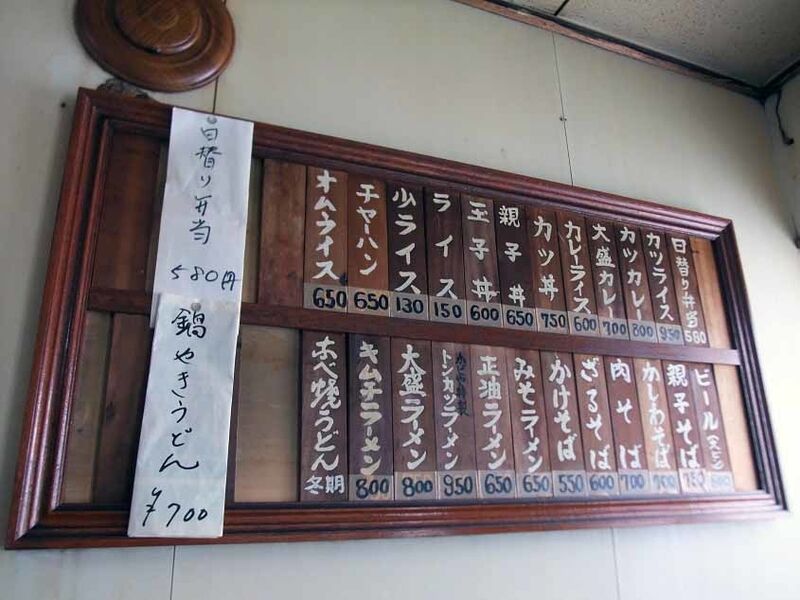 日替り弁当 580
カツライス 950
カツカレー 800
大盛カレー 700
カレーライス 600
カツ丼 750
親子丼 650
玉子丼 600
ライス 150
少ライス 130
チャーハン 650
オムライス 650
ビール
親子そば
かしわそば 700
肉そば 700
ざるそば 600
かけそば 550
みそラーメン 650
正油ラーメン 650
トンカツラーメン 950
大盛ラーメン 800
キムチラーメン 800
なべ焼うどん 冬期
日替り弁当 580円
鍋やきうどん ¥700